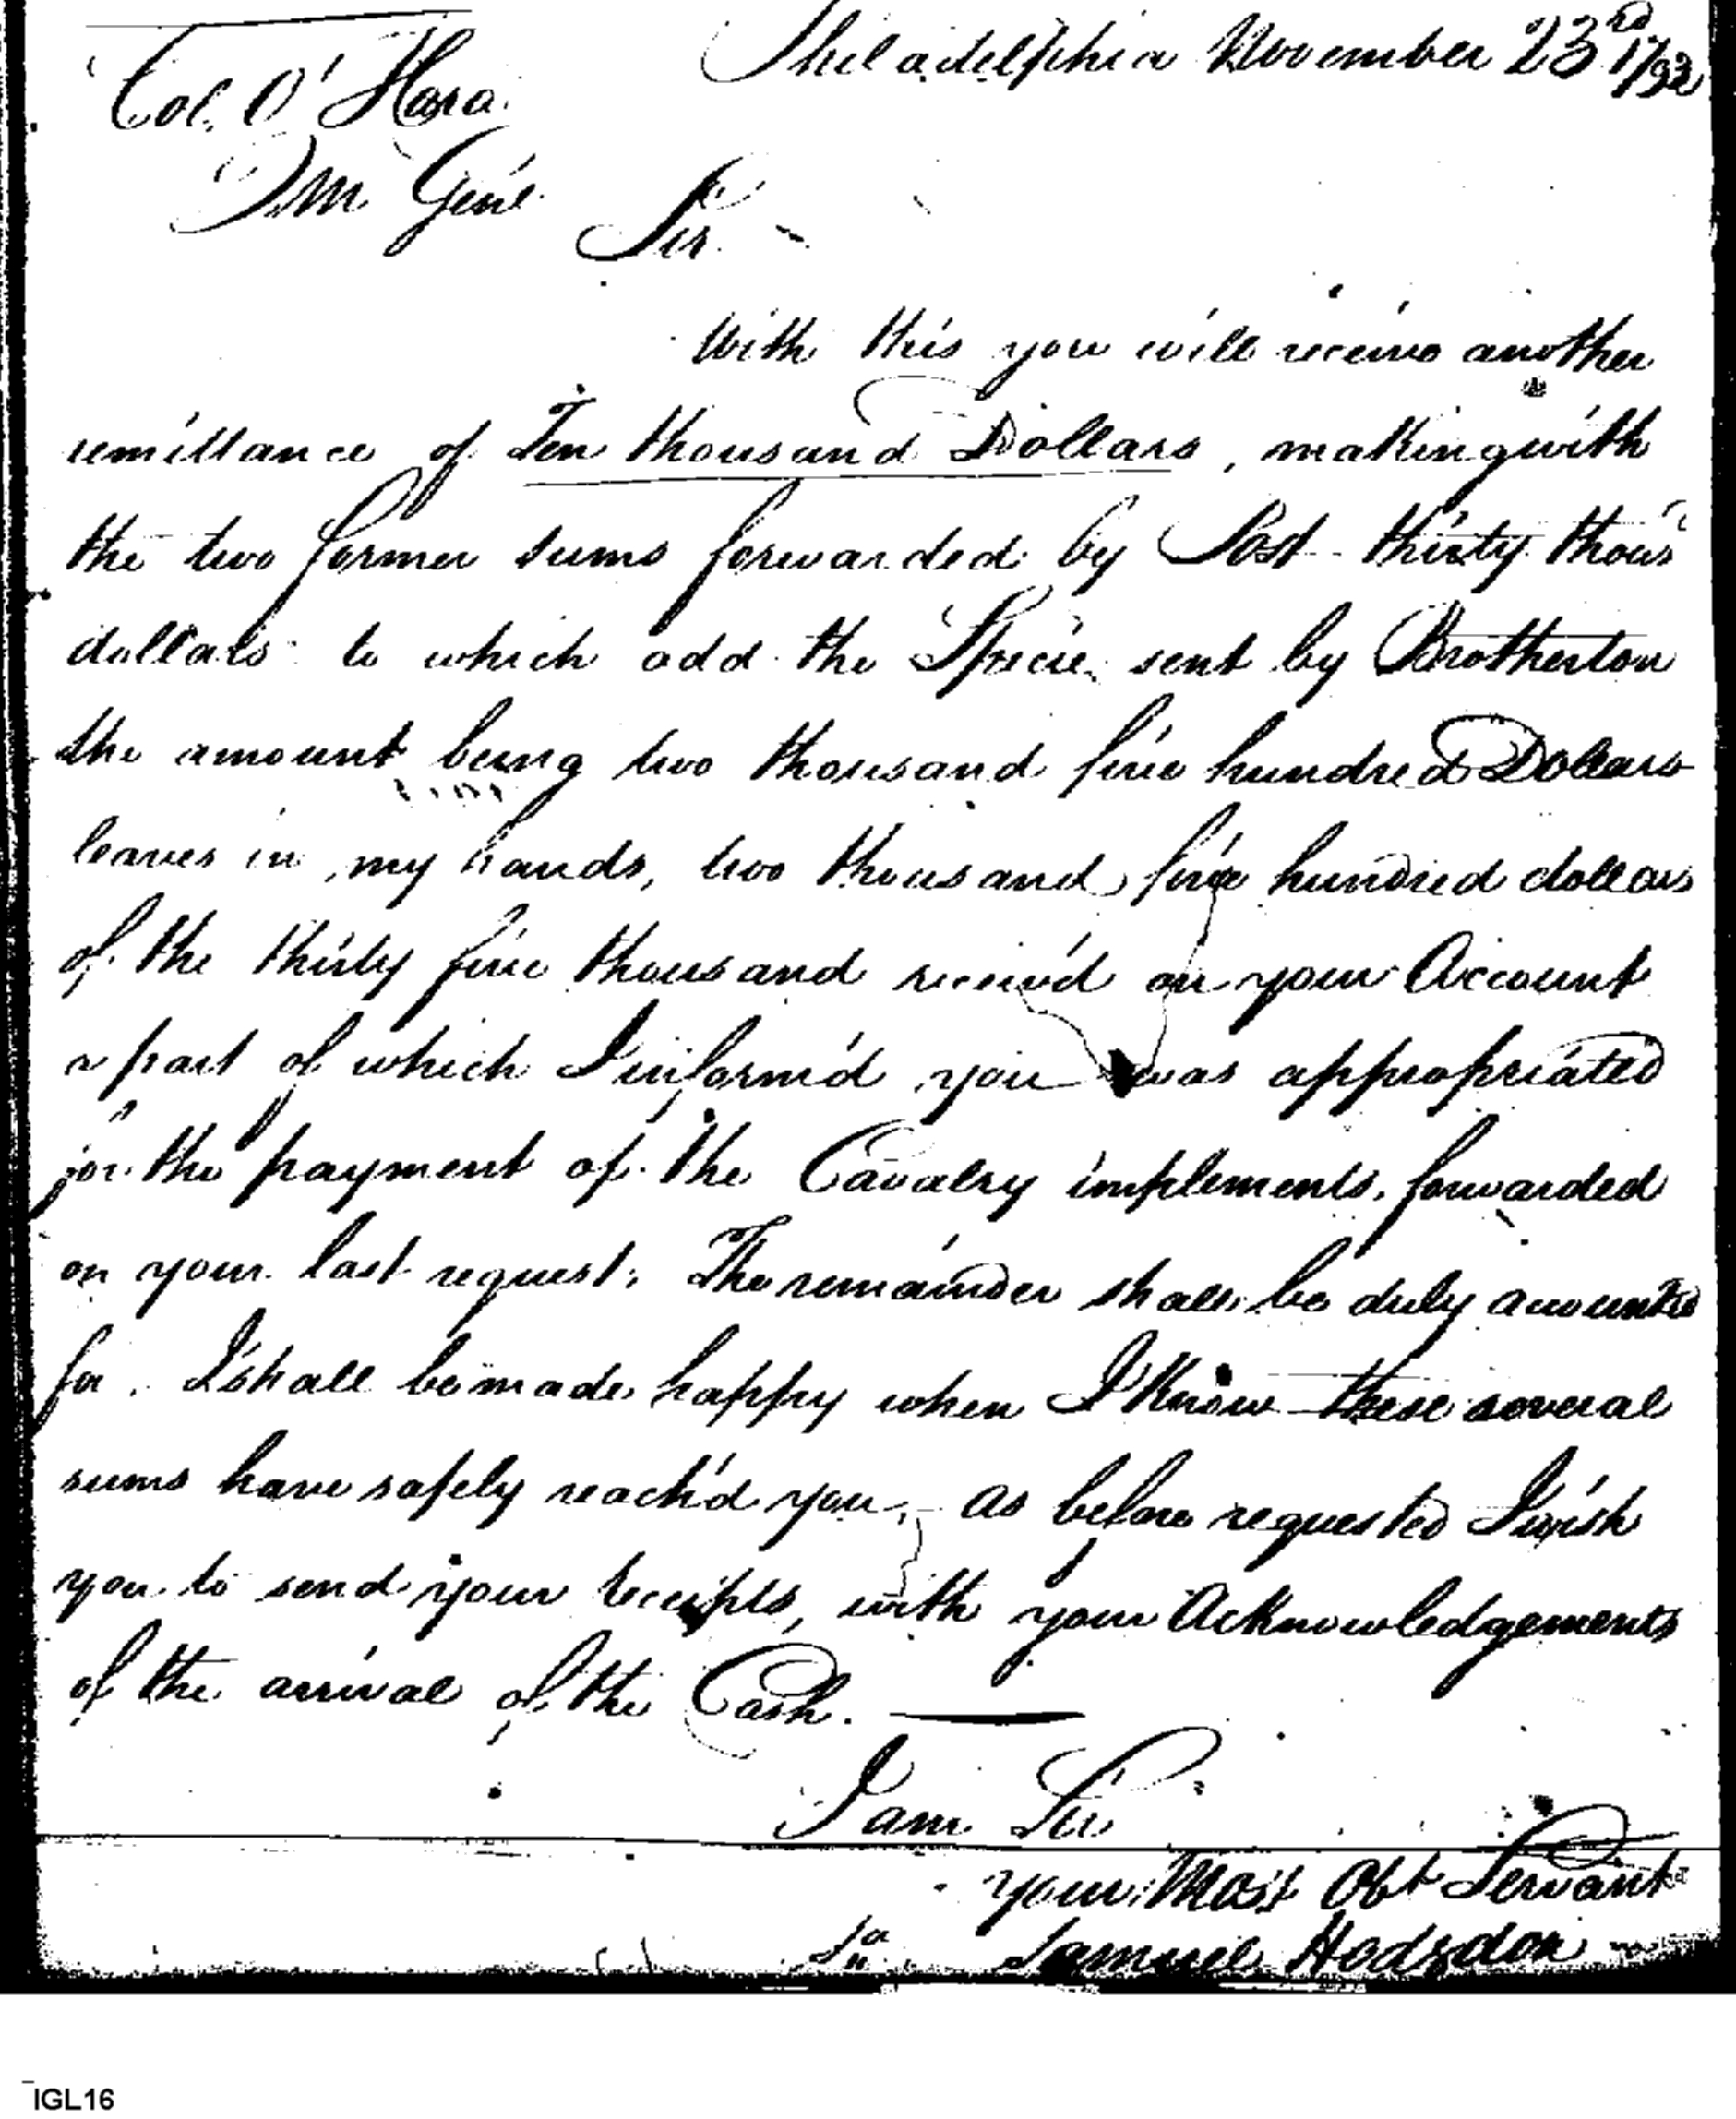 Philadelphia November 23rd 1792
Col. O'Hara
QM Genl
Sir
With this you will receive another
remittance of Ten thousand Dollars, making with
the two former sums forwarded by Post thirty thous
dollars to which add the Specie sent by Brotherton
the amount being two thousand five hundred Dollars
leaves in my hands, two thousand five hundred dollars
of the thirty five thousand receiv'd on your Account
a part of which I inform'd you was appropriated
for the payment of the Cavalry implements, forwarded
on your last request. The remainder shall be duly accounted
for. I shall be made happy when I Know these several
sums have safely reach'd you, as before requested I wish
you to send your receipts, with your Acknowledgements
of the arrival of the Cash.
I am Sir
your Most Obt Servant
Samuel Hodgdon
IGL16